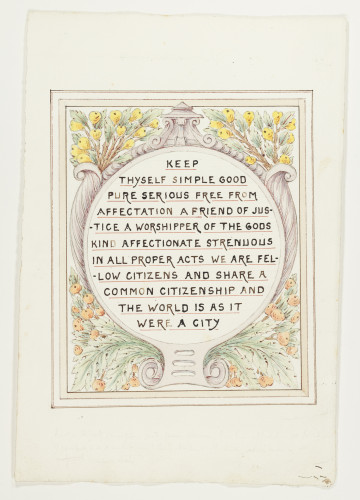 KEEP
THYSELF SIMPLE GOOD
PURE SERIOUS FREE FROM
AFFECTATION A FRIEND OF JUS-
-TICE A WORSHIPPER OF THE GODS
KIND AFFECTIONATE STRENUOUS
IN ALL PROPER ACTS WE ARE FEL-
-LOW CITIZENS AND SHARE A
COMMON CITIZENSHIP AND
THE WORLD IS AS IT
WERE A CITY